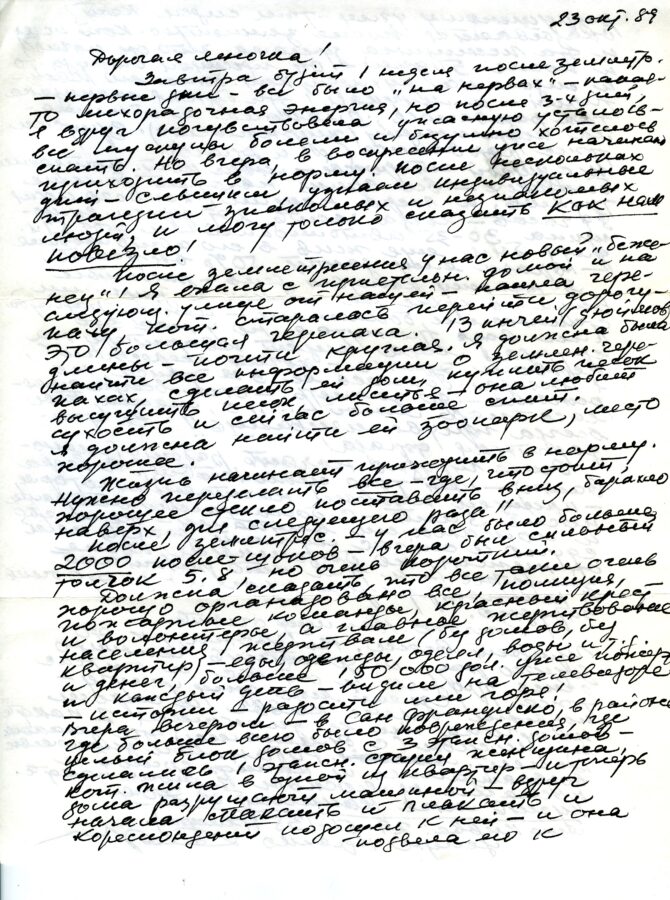 23 окт. 89
Дорогая Леночка!
Завтра будет 1 неделя после землетр.
– первые дни – все было "на нервах" – какая-
то лихорадочная энергия, но после 3-4 дней,
я вдруг почувствовала ужасную усталось –
все мускулы болели и безумно хотелось
спать. Но вчера, в воскресении уже начинаю
приходить в норму. После нескольких
дней – слышим, узнаем индивидуальные
трагедии знакомых и незнакомых
людей, и могу только сказать как нам
повезло!
После землетрясения у нас новый "беже-
нец"! Я ехала с приятельн. домой и на
следующ. улице от нашей – нашла чере-
паху кот. старалась перейти дорогу –
Это большая черепаха. 13 инчей (дюймов)
длины – почти круглая. Я должна была
найти все информации о землен. чере-
пахах, сделать ей дом, купить песок
высушить песок, листья – она любит
сухость и сейчас больше спит.
Я должна найти ей зоопарк, место
хорошее.
Жизнь начинает приходить в норму.
Нужно переделать все – где, что стоит,
хорошее стекло поставить вниз, барахло
наверх, для следующего раза"!
После землетряс. – у нас было больше
2000 послетолчков – вчера был сильный
толчок 5.8, но очень короткий.
Должна сказать, что все таки очень
хорошо организовано все, полиция,
пожарные команды, красный крест
и волонтеры, а главное жертвование
населения, жертвам (без домов, без
квартир) – еды, одежды, одеял, воды и т.д.
и денег, больше 150 000 дол. уже
и каждый день – видим на телевизоре
– истории радости или горя!
Вчера вечером – в Сан Франциско, в районе
где больше всего было повреждения, где
целый блок домов с 3 этажн. домов –
сделались 1 этажн. старая женщина,
кот. жила в одной из квартир – и теперь
дома разрушают машиной – вдруг
начала плакать и
кореспондент подошел к ней – и она
подвела его к